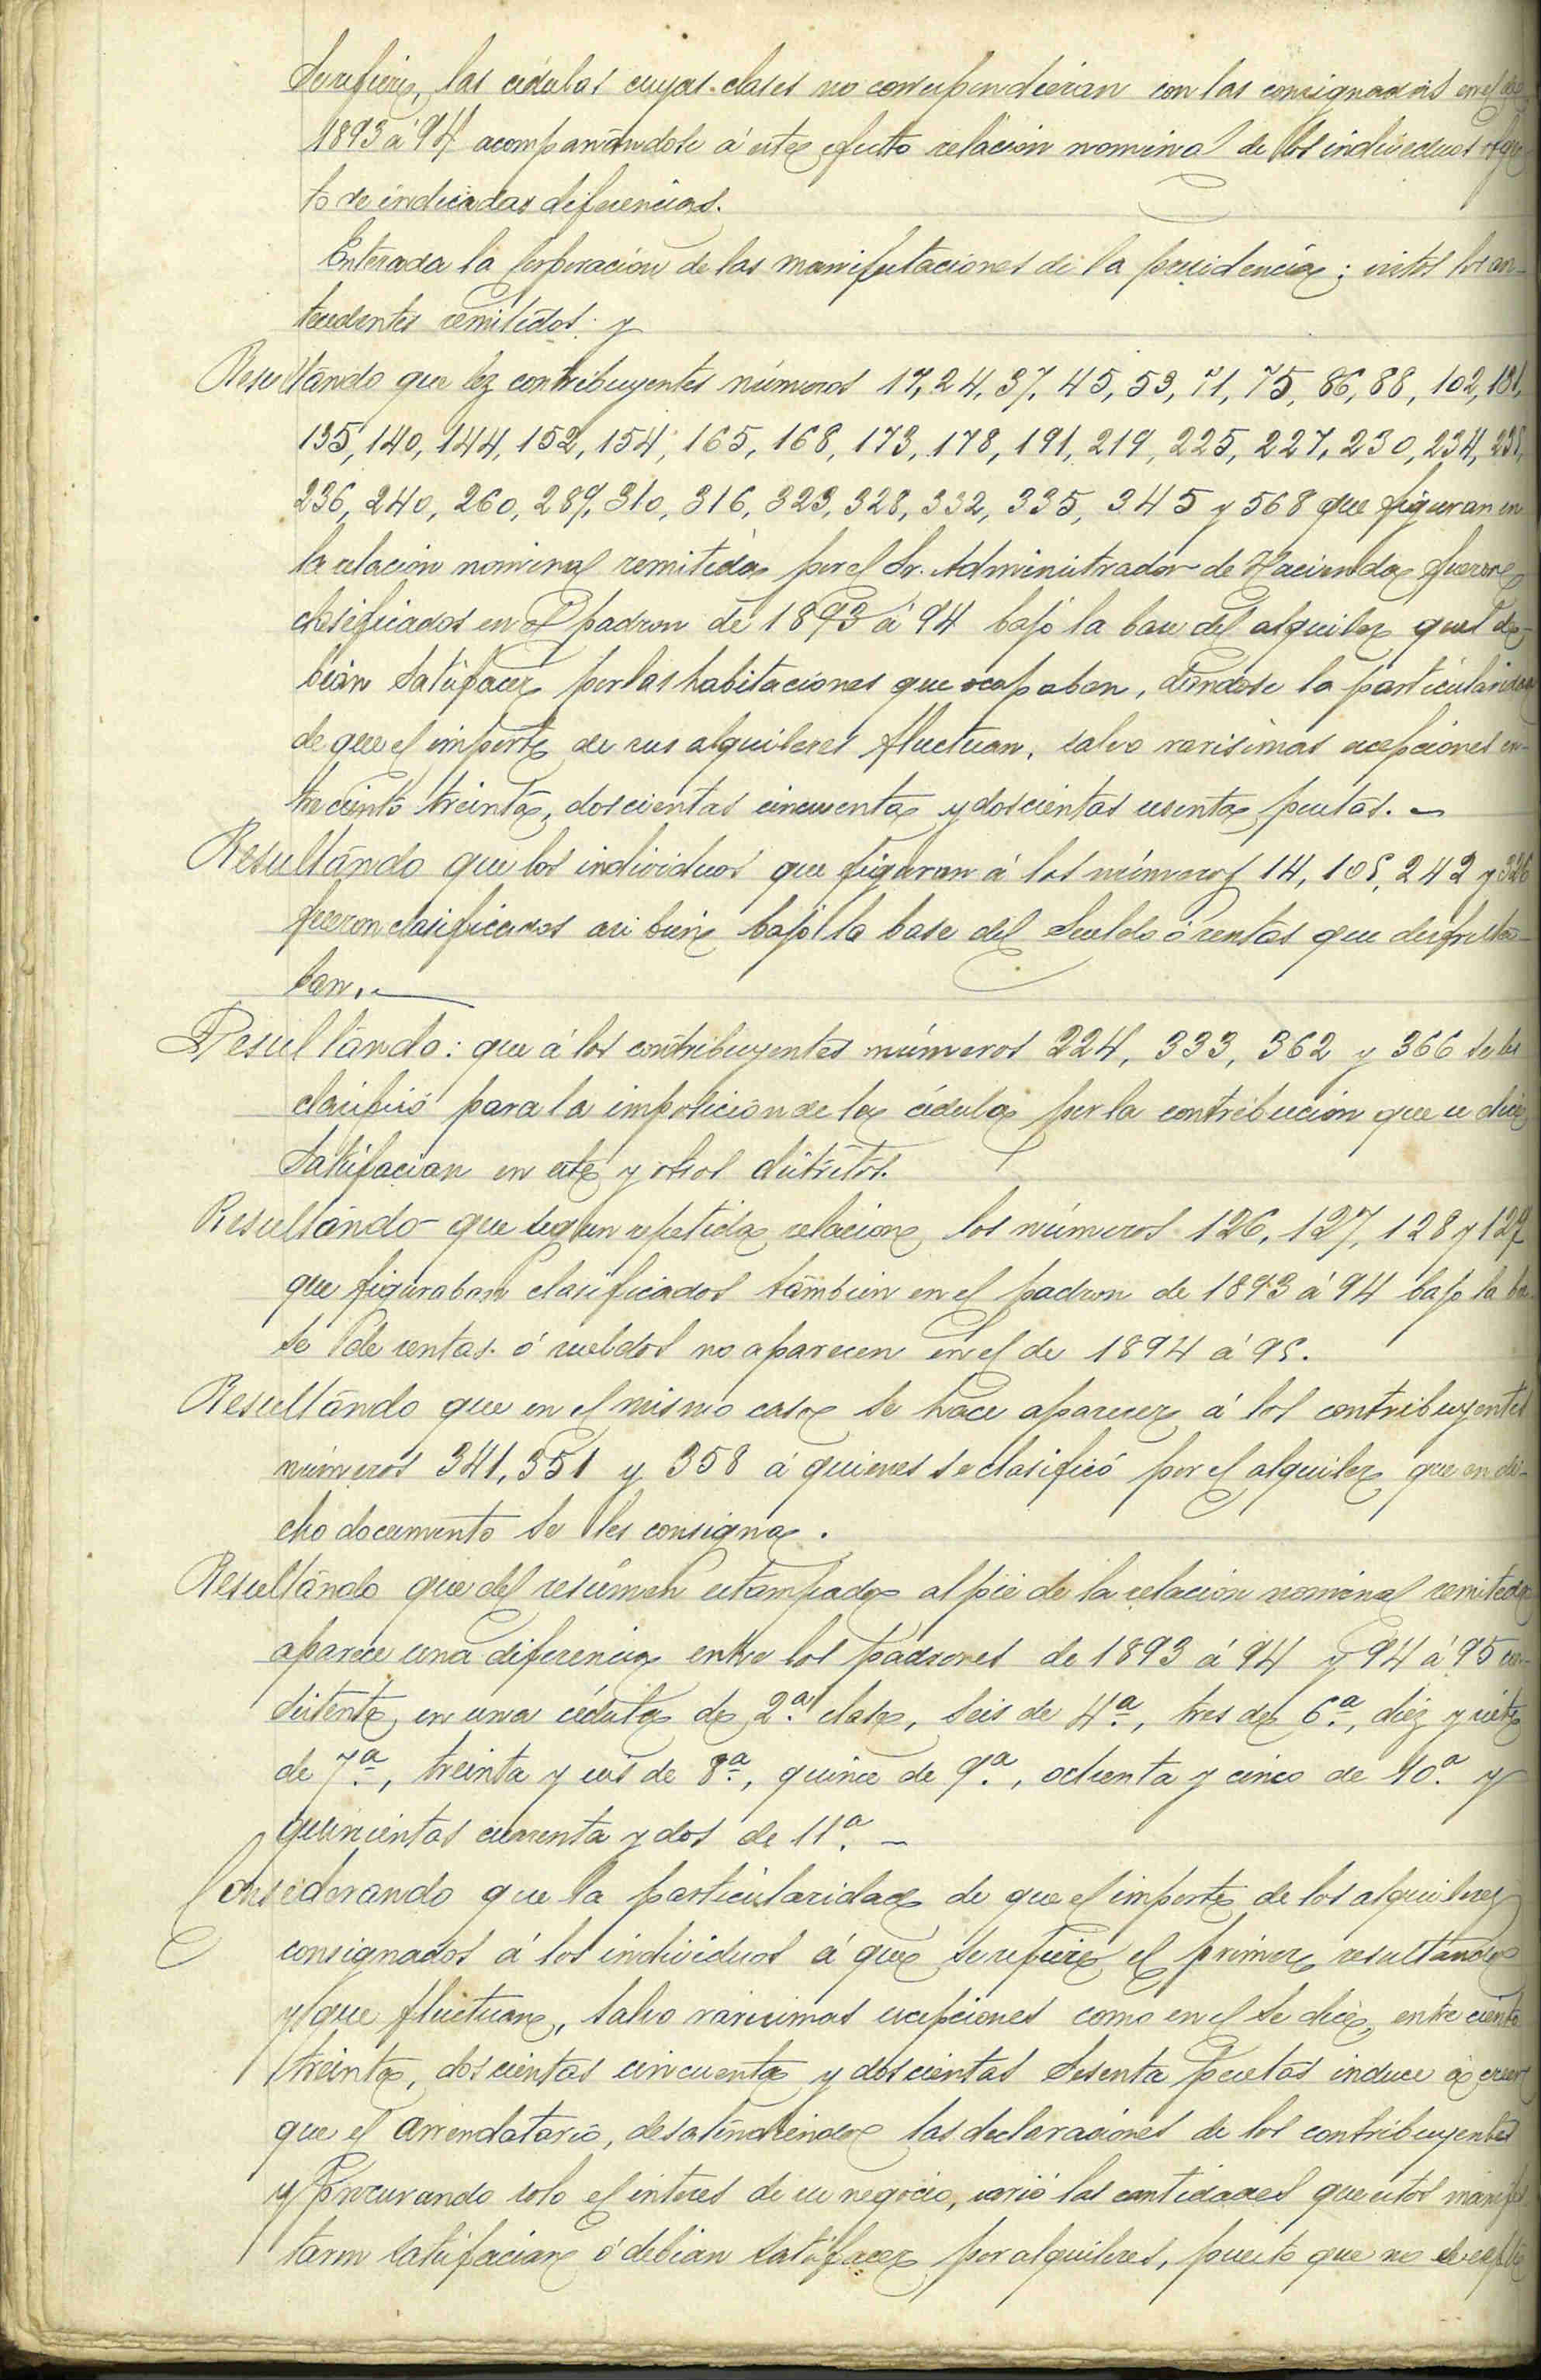 se refiere, las cédulas cuyas clases no correspondieran con las consignadas en el de
1893 á 94 acompañándose á este efecto relacion nominal de los individuos obje-
to de indicadas diferencias.
Enterada la Corporación de las manifestaciones de la presidencia; vistos los an-
tecedentes remitidos; y
Resultando que los contribuyentes números 17, 24, 37, 45, 53, 71, 75, 86, 88, 102, 131,
135, 140, 144, 152, 154, 165, 168, 173, 178, 191, 219, 225, 227, 230, 234, 235,
236, 240, 260, 289, 310, 316, 323, 328, 332, 335, 345 y 568 que figuran en
la relacion nominal remitida por el Sr. Administrador de Hacienda fueron
clasificados en el padron de 1893 á 94 bajo la base del alquiler que de-
bian satisfacer por las habitaciones que ocupaban, dandose la particularidad
de que el importe de sus alquileres fluctuan, salvo rarisimas excepciones en-
tre ciento treinta, doscientas cincuenta y doscientas sesenta pesetas. —
Resultando que los individuos que figuran á los números 14, 105, 242 y 326
fueron clasificados asi bien bajo la base del sueldo ó rentas que disfruta-
ban. —
Resultando: que á los contribuyentes números 224, 333, 362 y 366 se les
clasificó para la imposicion de la cédula por la contribución que se dice
satisfacian en este y otros distritos.
Resultando que segun repetida relacion los números 126, 127, 128 y 129
que figuraban clasificados tambien en el padron de 1893 á 94 bajo la ba-
se de rentas ó sueldos no aparecen en el de 1894 á 95.
Resultando que en el mismo caso se hace aparecer á los contribuyentes
números 341, 351 y 358 á quienes se clasificó por el alquiler que en di-
cho documento se les consigna.
Resultando que del resúmen estampado al pié de la relación nominal remitida
aparece una diferencia entre los padrones de 1893 á 94 y 94 á 95 con-
sistente en una cédula de 2.ª clase, seis de 4.ª, tres de 6.ª, diez y siete
de 7.ª, treinta y seis de 8.ª, quince de 9.ª, ochenta y cinco de 10.ª y
quinientas cuarenta y dos de 11.ª —
Considerando que la particularidad de que el importe de los alquileres
consignados á los individuos á que se refiere el primer resultando
y que fluctuan, salvo rarisimas excepciones como en el se dice, entre ciento
treinta, doscientas cincuenta y doscientas sesenta pesetas induce á creer
que el arrendatario, desatendiendo las declaraciones de los contribuyentes
y procurando solo el interes de su negocio, varió las cantidades que estos manifes-
taron satisfacian ó debian satisfacer por alquileres, puesto que no se